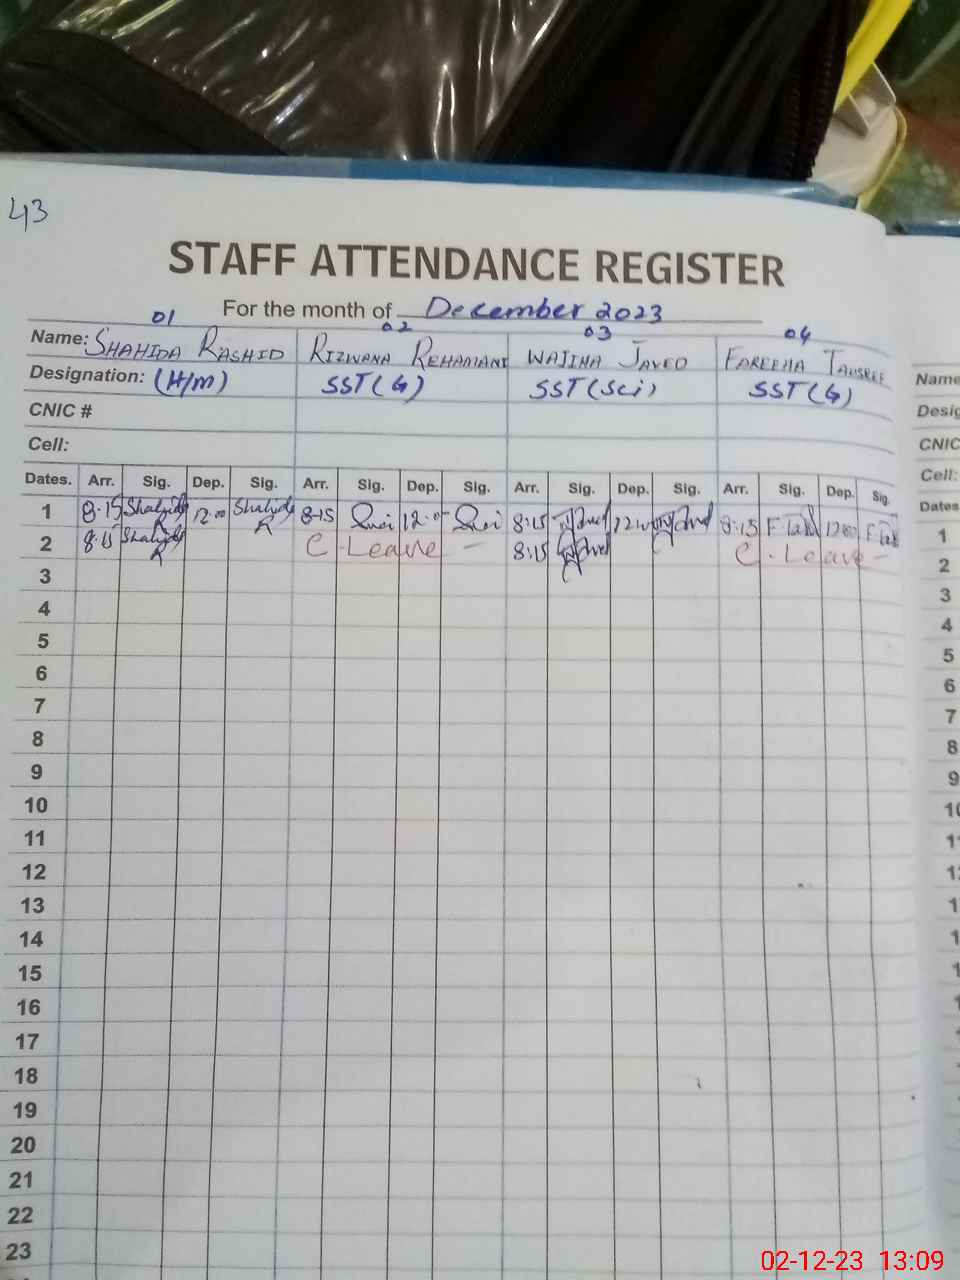 43
STAFF ATTENDANCE REGISTER
For the month of December 2023
01 02 03 04
Name: SHAHIDA RASHID RIZWANA REHAMANI WAJIHA JAVED FAREEHA TAUSREE
Name
Designation: (H/M) SST(G) SST(Sci) SST(G)
Desig
CNIC #
CNIC
Cell:
Cell:
Dates. Arr. Sig. Dep. Sig. Arr. Sig. Dep. Sig. Arr. Sig. Dep. Sig. Arr. Sig. Dep. Sig.
Dates
1 8-15 Shahida R 12:00 Shahida R 8-15 12:00 8:15 8:15 1200
1
2 8:15 Shahida R C. Leave - 8:15 C. Leave -
2
3
3
4
4
5
5
6
6
7
7
8
8
9
9
10
10
11
12
13
14
15
16
17
18
19
20
21
22
23
02-12-23 13:09